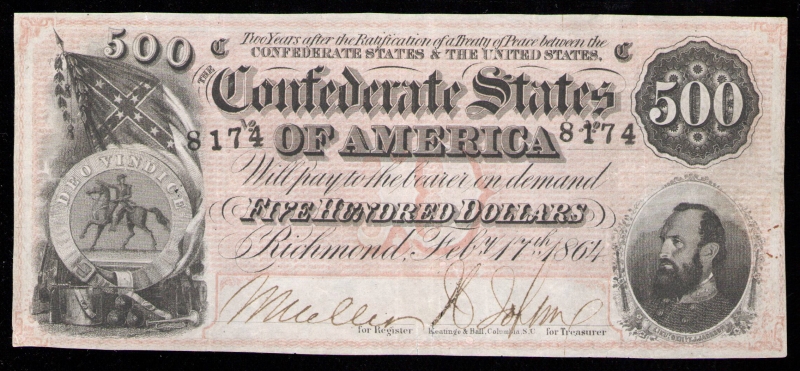 500 C Two Years after the Ratification of a Treaty of Peace between the C
CONFEDERATE STATES & THE UNITED STATES,
THE Confederate States 500
8174 No OF AMERICA 8174 No
DEO VINDICE
Will pay to the bearer on demand
FIVE HUNDRED DOLLARS
Richmond, Feby. 17th. 1864
for Register Keatinge & Ball, Columbia, S.C. for Treasurer